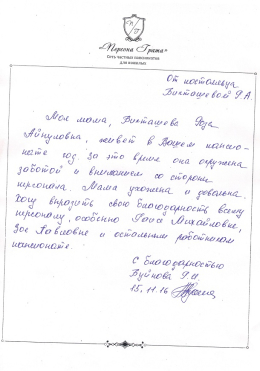 «Персона Грата»
Сеть частных пансионатов
для пожилых
От постояльца
Бикташевой Р.А
Моя мама, Бикташева Роза
Айнулловна, живет в Вашем пансио-
нате год За это время она окружена
заботой и вниманием со стороны
персонала. Мама ухожена и довольна.
Хочу выразить свою благодарность всему
персоналу, особенно Раисе Михайловне,
Зое Павловне и остальным работникам
пансионата.
С благодарностью
Буйнова Г.И.
15.11.16